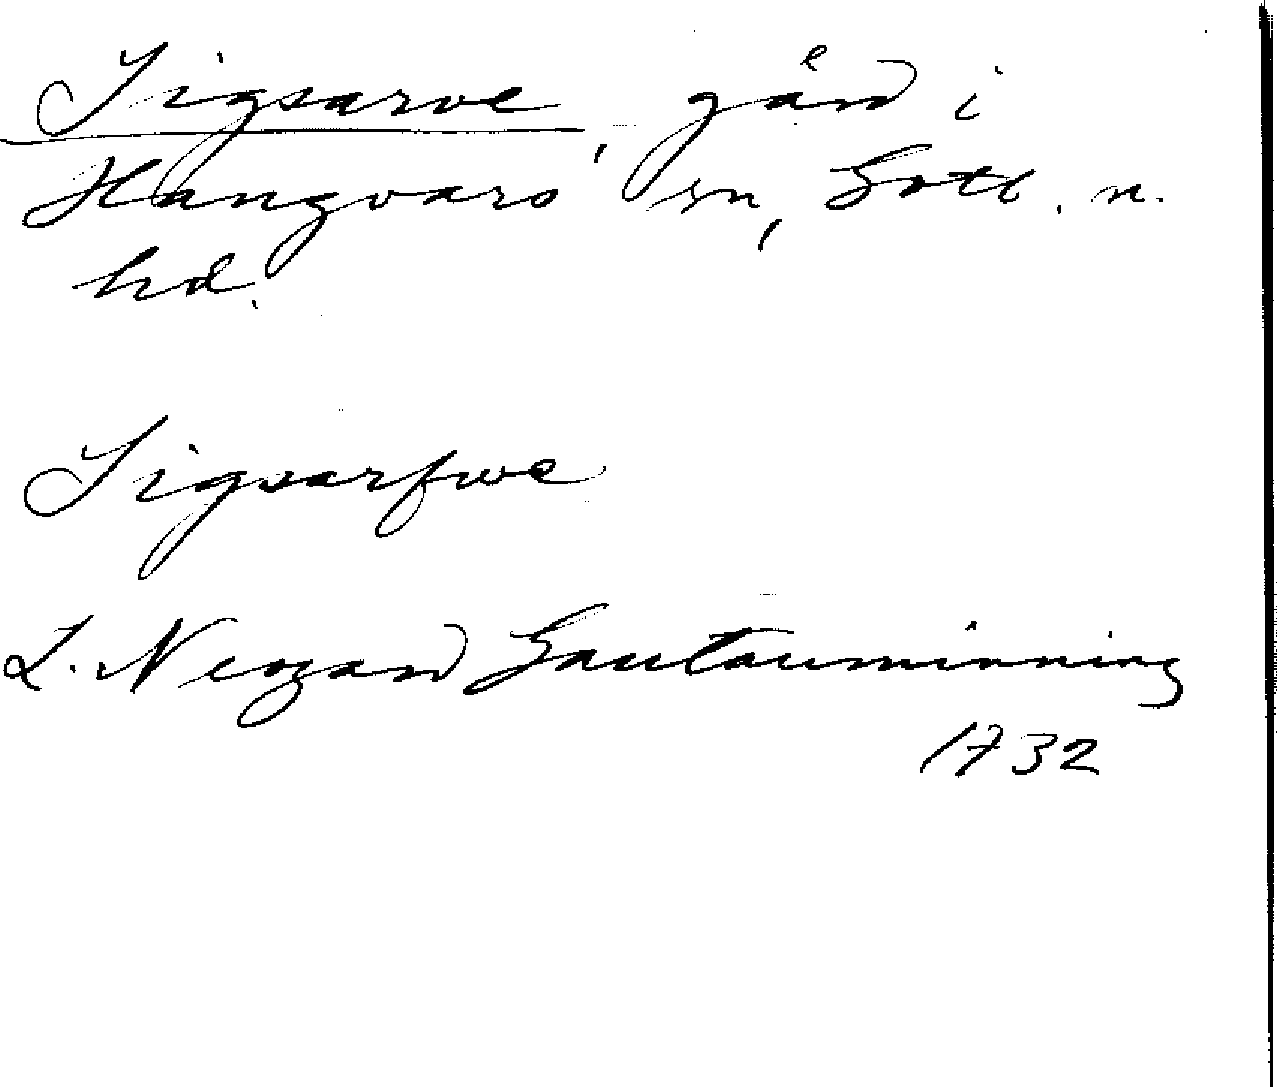 Sigsarve, gård i
Hangvars sn, Gotl. n.
hd.
Sigsarfwe
L. Neogard Gautauminning
1732